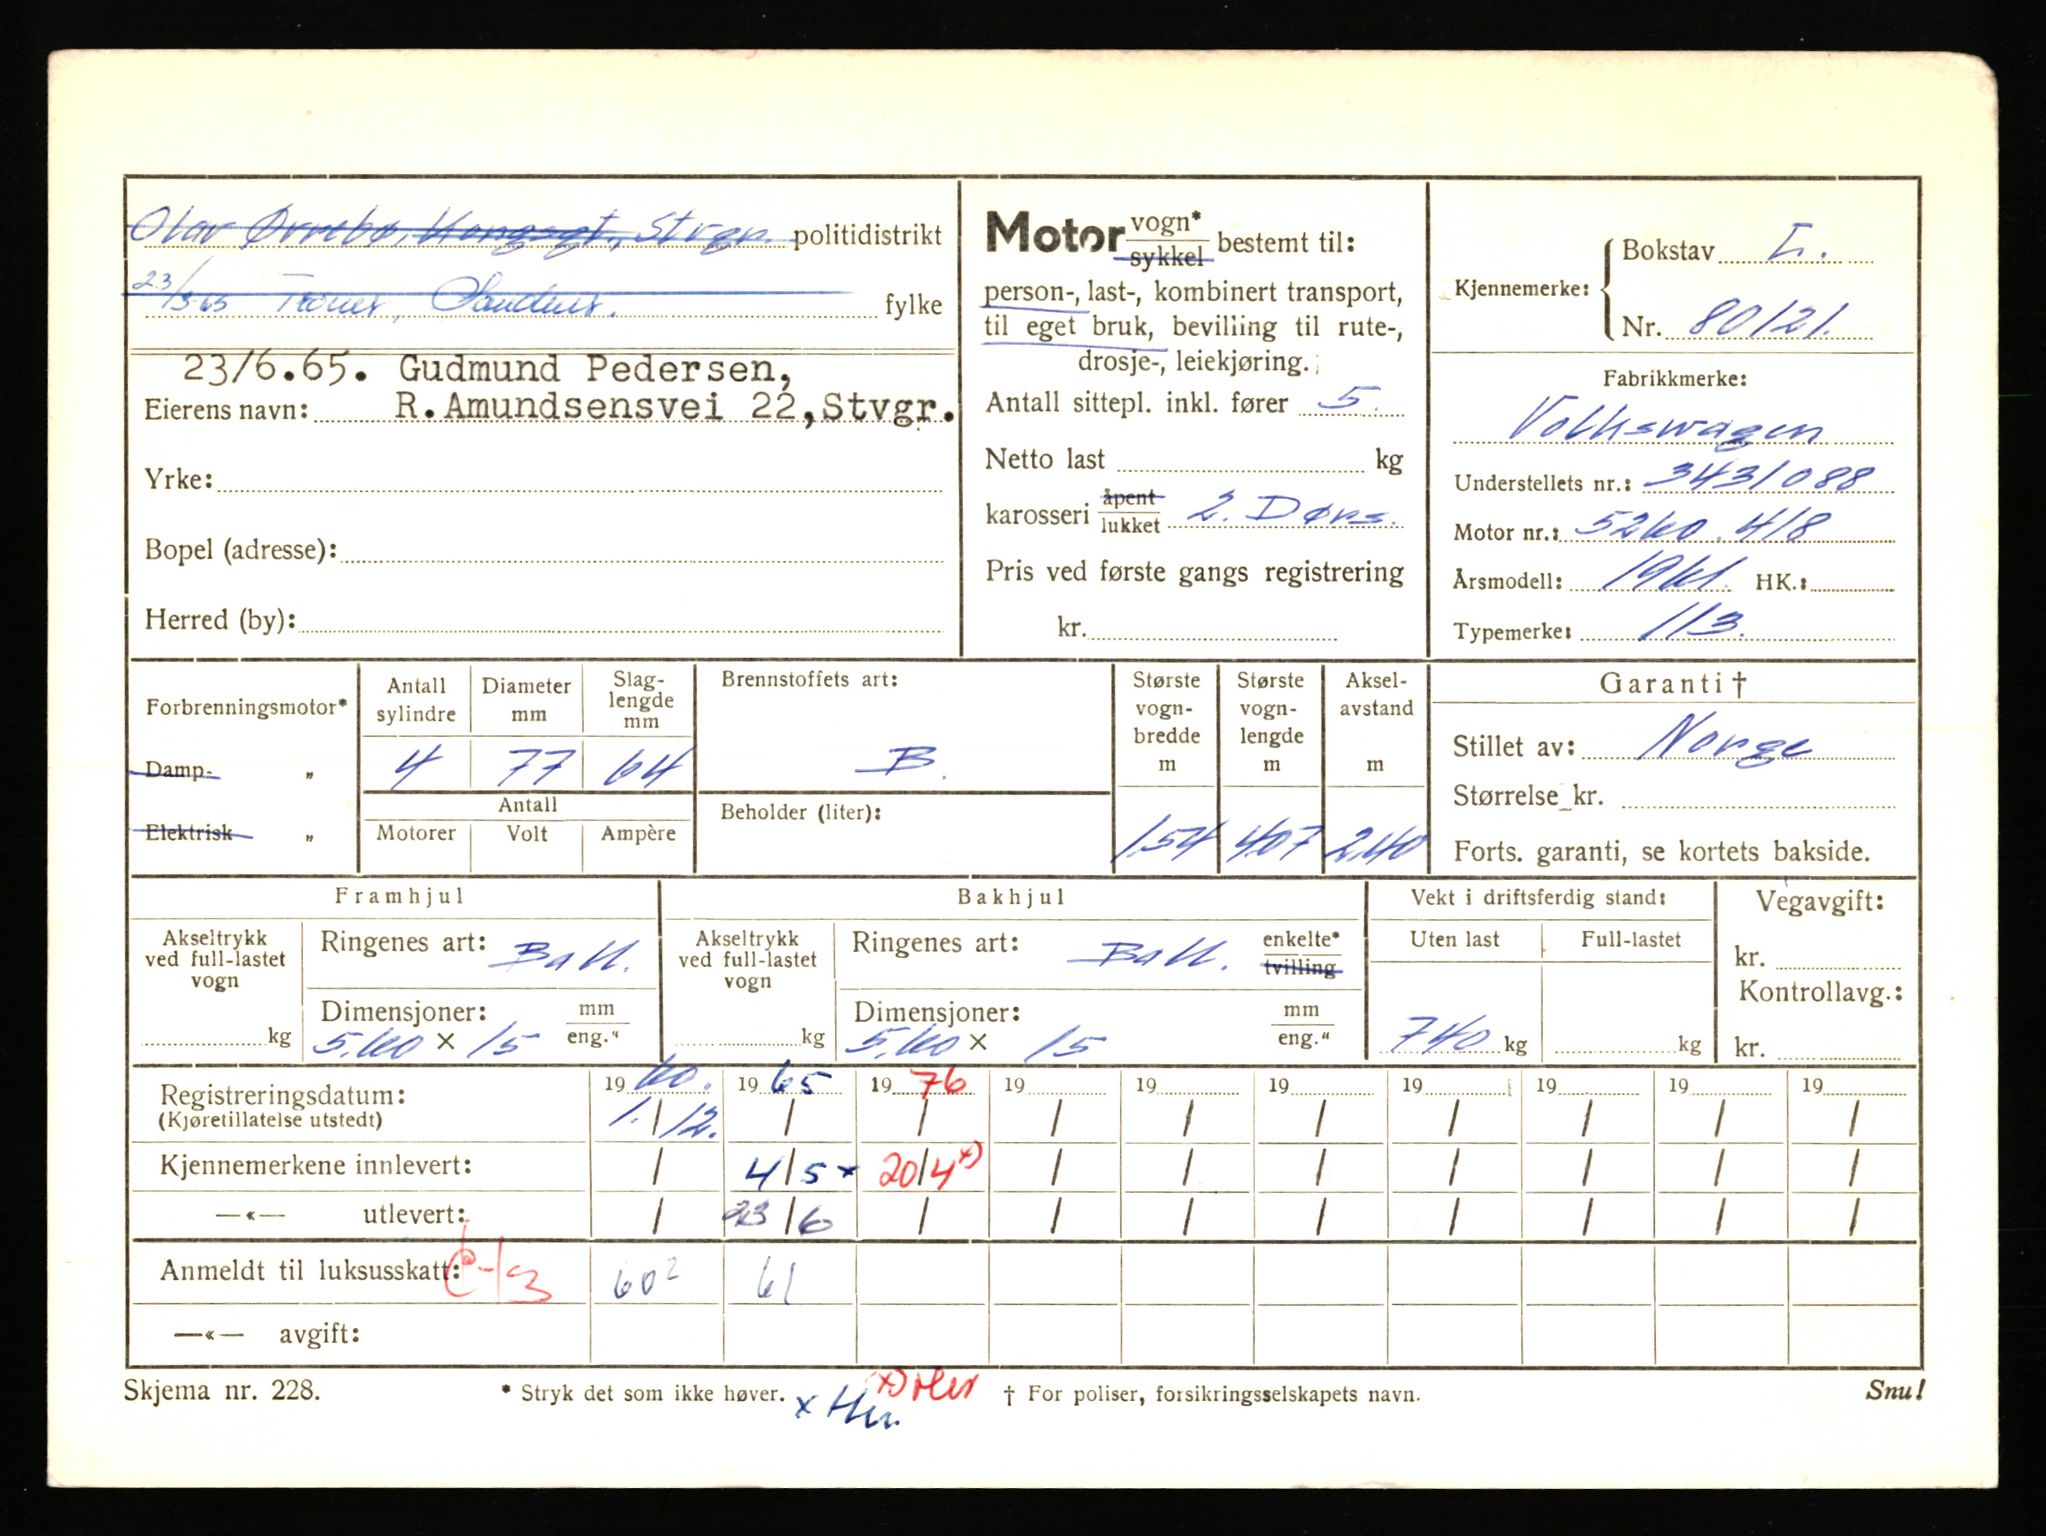 Olav Ørrebø, Kongsgt., Stvgr. politidistrikt
23/3 65 Sandnes. fylke
23/6.65. Gudmund Pedersen,
Eierens navn: R.Amundsensvei 22, Stvgr.
Yrke:
Bopel (adresse):
Herred (by):
Motor vogn* / sykkel bestemt til:
person-, last-, kombinert transport,
til eget bruk, bevilling til rute-,
drosje-, leiekjøring.
Antall sittepl. inkl. fører 5.
Netto last kg
karosseri åpent / lukket 2. Dørs.
Pris ved første gangs registrering
kr.
Kjennemerke: Bokstav L.
Nr. 80121.
Fabrikkmerke:
Volkswagen
Understellets nr.: 3431088
Motor nr.: 5260.418
Årsmodell: 1961. HK.:
Typemerke: 113.
Forbrenningsmotor*
Damp- „
Elektrisk „
Antall sylindre 4
Diameter mm 77
Slag-lengde mm 64
Antall
Motorer Volt Ampère
Brennstoffets art:
B.
Beholder (liter):
Største vogn-bredde m 1.54
Største vogn-lengde m 4.07
Aksel-avstand m 2.40
Garanti †
Stillet av: Norge
Størrelse kr.
Forts. garanti, se kortets bakside.
Framhjul
Akseltrykk ved full-lastet vogn kg
Ringenes art: Ball.
Dimensjoner: mm / eng."
5.60 × 15
Bakhjul
Akseltrykk ved full-lastet vogn kg
Ringenes art: Ball. enkelte* / tvilling
Dimensjoner: mm / eng."
5.60 × 15
Vekt i driftsferdig stand:
Uten last Full-lastet
740 kg kg
Vegavgift:
kr.
Kontrollavg.:
kr.
Registreringsdatum: 19 60. 19 65 19 76 19 19 19 19 19 19 19
(Kjøretillatelse utstedt) 1. / 12. / / / / / / / / /
Kjennemerkene innlevert: / 4/5 x 20/4 x) / / / / / / /
—«— utlevert: / 23/6 / / / / / / / /
Anmeldt til luksusskatt: 60² 61
—«— avgift:
Skjema nr. 228. * Stryk det som ikke høver. † For poliser, forsikringsselskapets navn. Snu!